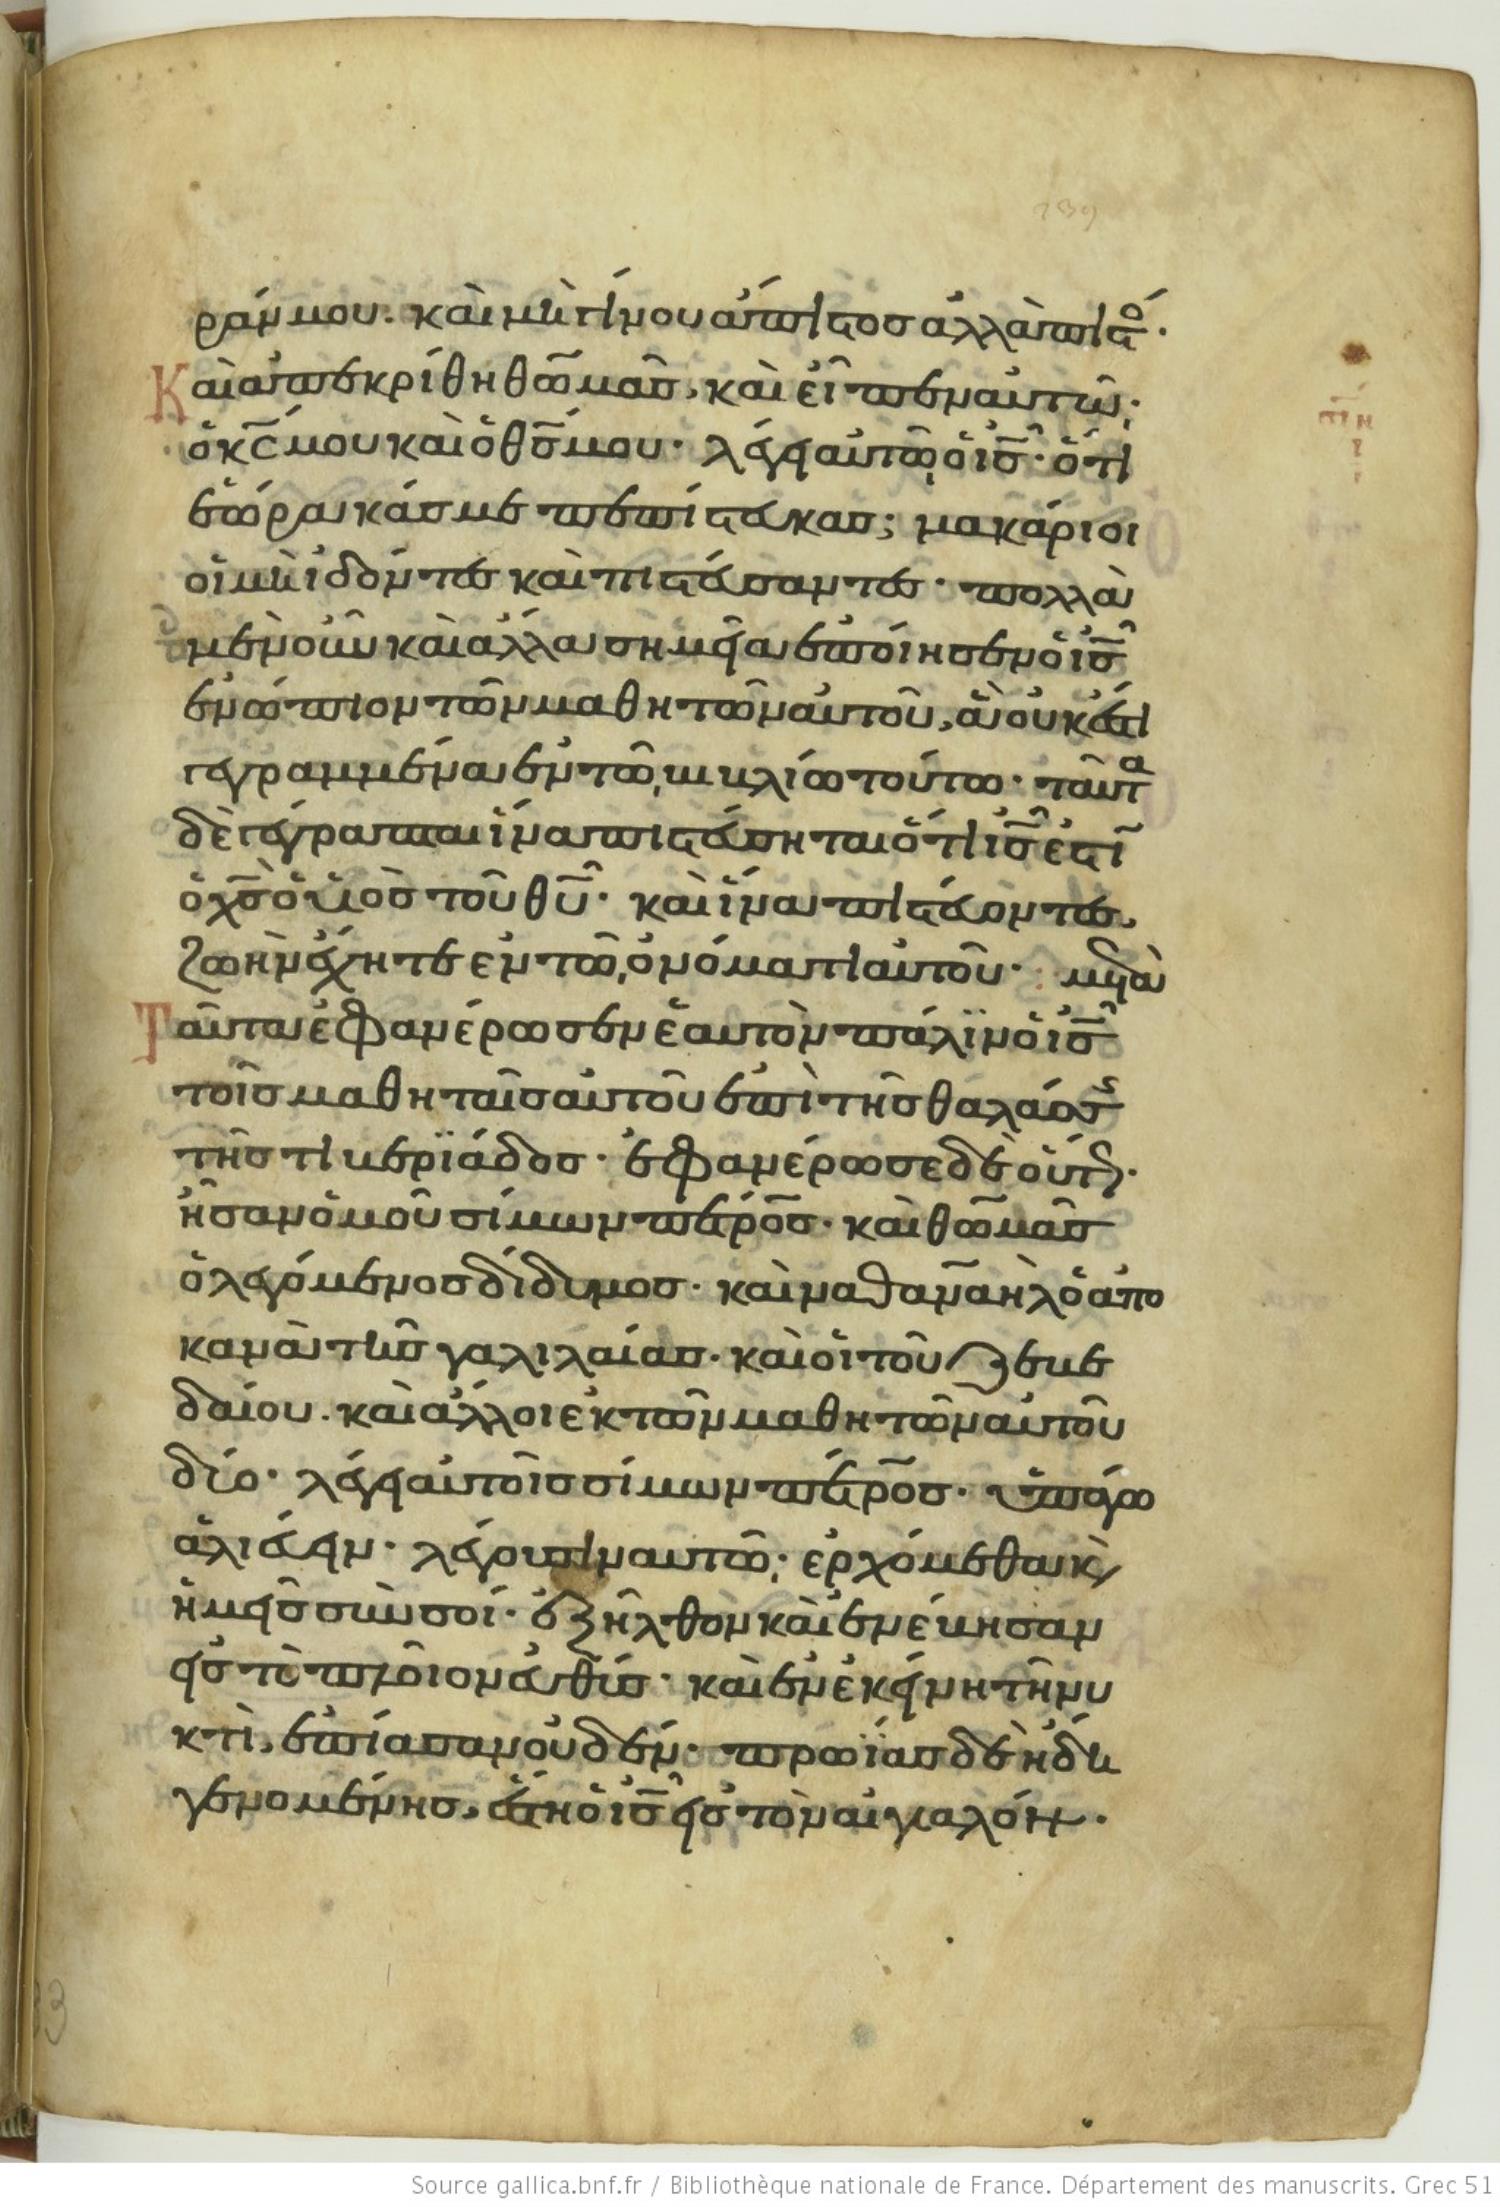 ράν μου. καὶ μὴ γίνου ἄπιστοσ ἀλλὰ πιστό.
Καὶ ἀπεκρίθη θωμᾶσ, καὶ εἶπεν αὐτῶ·
ὁ κ̅ς̅ μου καὶ ὁ θ̅σ̅ μου· λέγει αὐτῶ ὁ ι̅σ̅· ὅτι
ἑώρακάσ με πεπίστευκασ; μακάριοι
οἱ μὴ ἰδόντεσ καὶ πιστεύσαντεσ· πολλὰ
μὲν οὖν καὶ ἄλλα σημεῖα ἐποίησεν ὁ ι̅σ̅
ἐνώπιον τῶν μαθητῶν αὐτοῦ, ἃ οὐκ ἔστι
γεγραμμένα ἐν τῶ βιβλίω τούτω· ταῦτα
δὲ γέγραπται ἵνα πιστεύσηται ὅτι ι̅σ̅ ἐστῖ
ὁ χ̅σ̅ ὁ υἱὸσ τοῦ θ̅υ̅· καὶ ἵνα πιστεύοντεσ,
ζωὴν ἔχητε ἐν τῶ ὀνόματι αὐτοῦ· μετὰ
Ταῦτα ἐφανέρωσεν ἑαυτὸν πάλϊν ὁ ι̅σ̅
τοῖσ μαθηταῖσ αὐτοῦ ἐπὶ τῆσ θαλάσσησ
τῆσ τιβερϊάδοσ· ἐφανέρωσε δὲ οὕτωσ·
ἦσαν ὁμοῦ σίμων πέτροσ· καὶ θωμᾶσ
ὁ λεγόμενοσ δίδυμοσ· καὶ ναθαναὴλ ὁ ἀπο
κανὰ τῆσ γαλιλαίασ· καὶ οἱ τοῦ ζεβε
δαίου. καὶ ἄλλοι ἐκ τῶν μαθητῶν αὐτοῦ
δύο· λέγει αὐτοῖσ σίμων πέτροσ· ὑπάγω
ἁλιεύειν· λέγουσιν αὐτῶ· ἐρχόμεθα κ̀
ἡμεῖσ σὺν σοί· ἐξῆλθον καὶ ἐνέβησαν
εἰσ τὸ πλοῖον εὐθὺσ· καὶ ἐν ἐκείνη τῆ νυ
κτὶ, ἐπίασαν οὐδέν· πρωΐασ δὲ ἤδη
γενομένησ, ἔστη ὁ ι̅σ̅ εἰσ τὸν αἰγιαλόν·